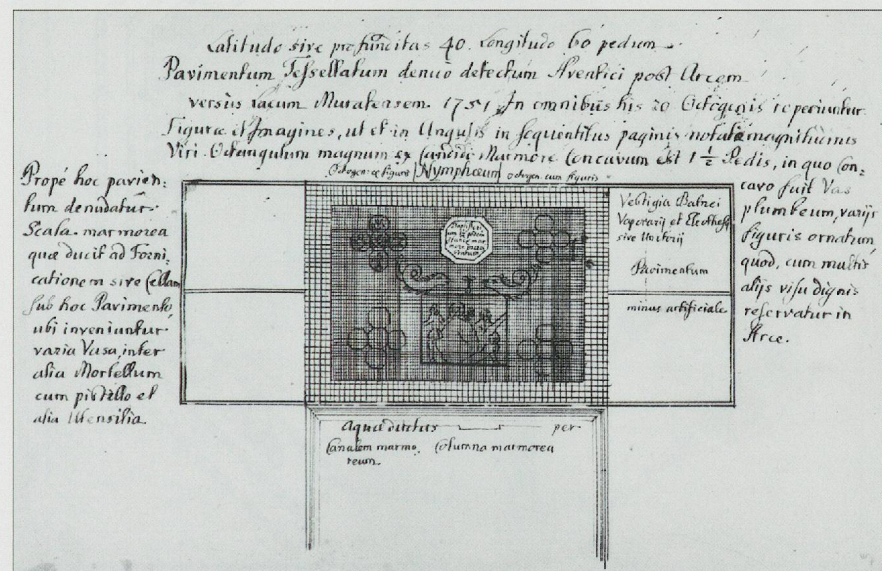 Latitudo sive profuncitas 40. Longitudo 60 pedum.
Pavimentum Tessellatum denuò detectum Aventici post Arcem
versùs lacum Muratensem. 1751. In omnibus his 20 Octogonis reperiuntur
Figuræ et Imagines, ut et in Ungulis in sequentibus paginis notatæ magnitudinis
Viri. Octangulum magnum ex Candido Marmore Concavum est 1 1/2 Pedis, in quo Con-
cavo fuit Vas
plumbeum, varijs
figuris ornatum
quod, cum multis
alijs visu dignis
reservatur in
Arce.
Propè hoc pavien:
tum denudatur
Scala marmorea
quæ ducit ad Forni:
cationem sive Cellam
sub hoc Pavimento
ubi inveniuntur
varia Vasa, inter
alia Mortellum
cum pistello et
alia Utensilia.
Octogon: cum figuris
Nymphæum
octogon. cum figuris
Vestigia Balnei
Vaporarij et
sive Unctorij
Pavimentum
minus artificiale
Aquæ ductus per
Canalem marmo:
reum.
Columna marmorea